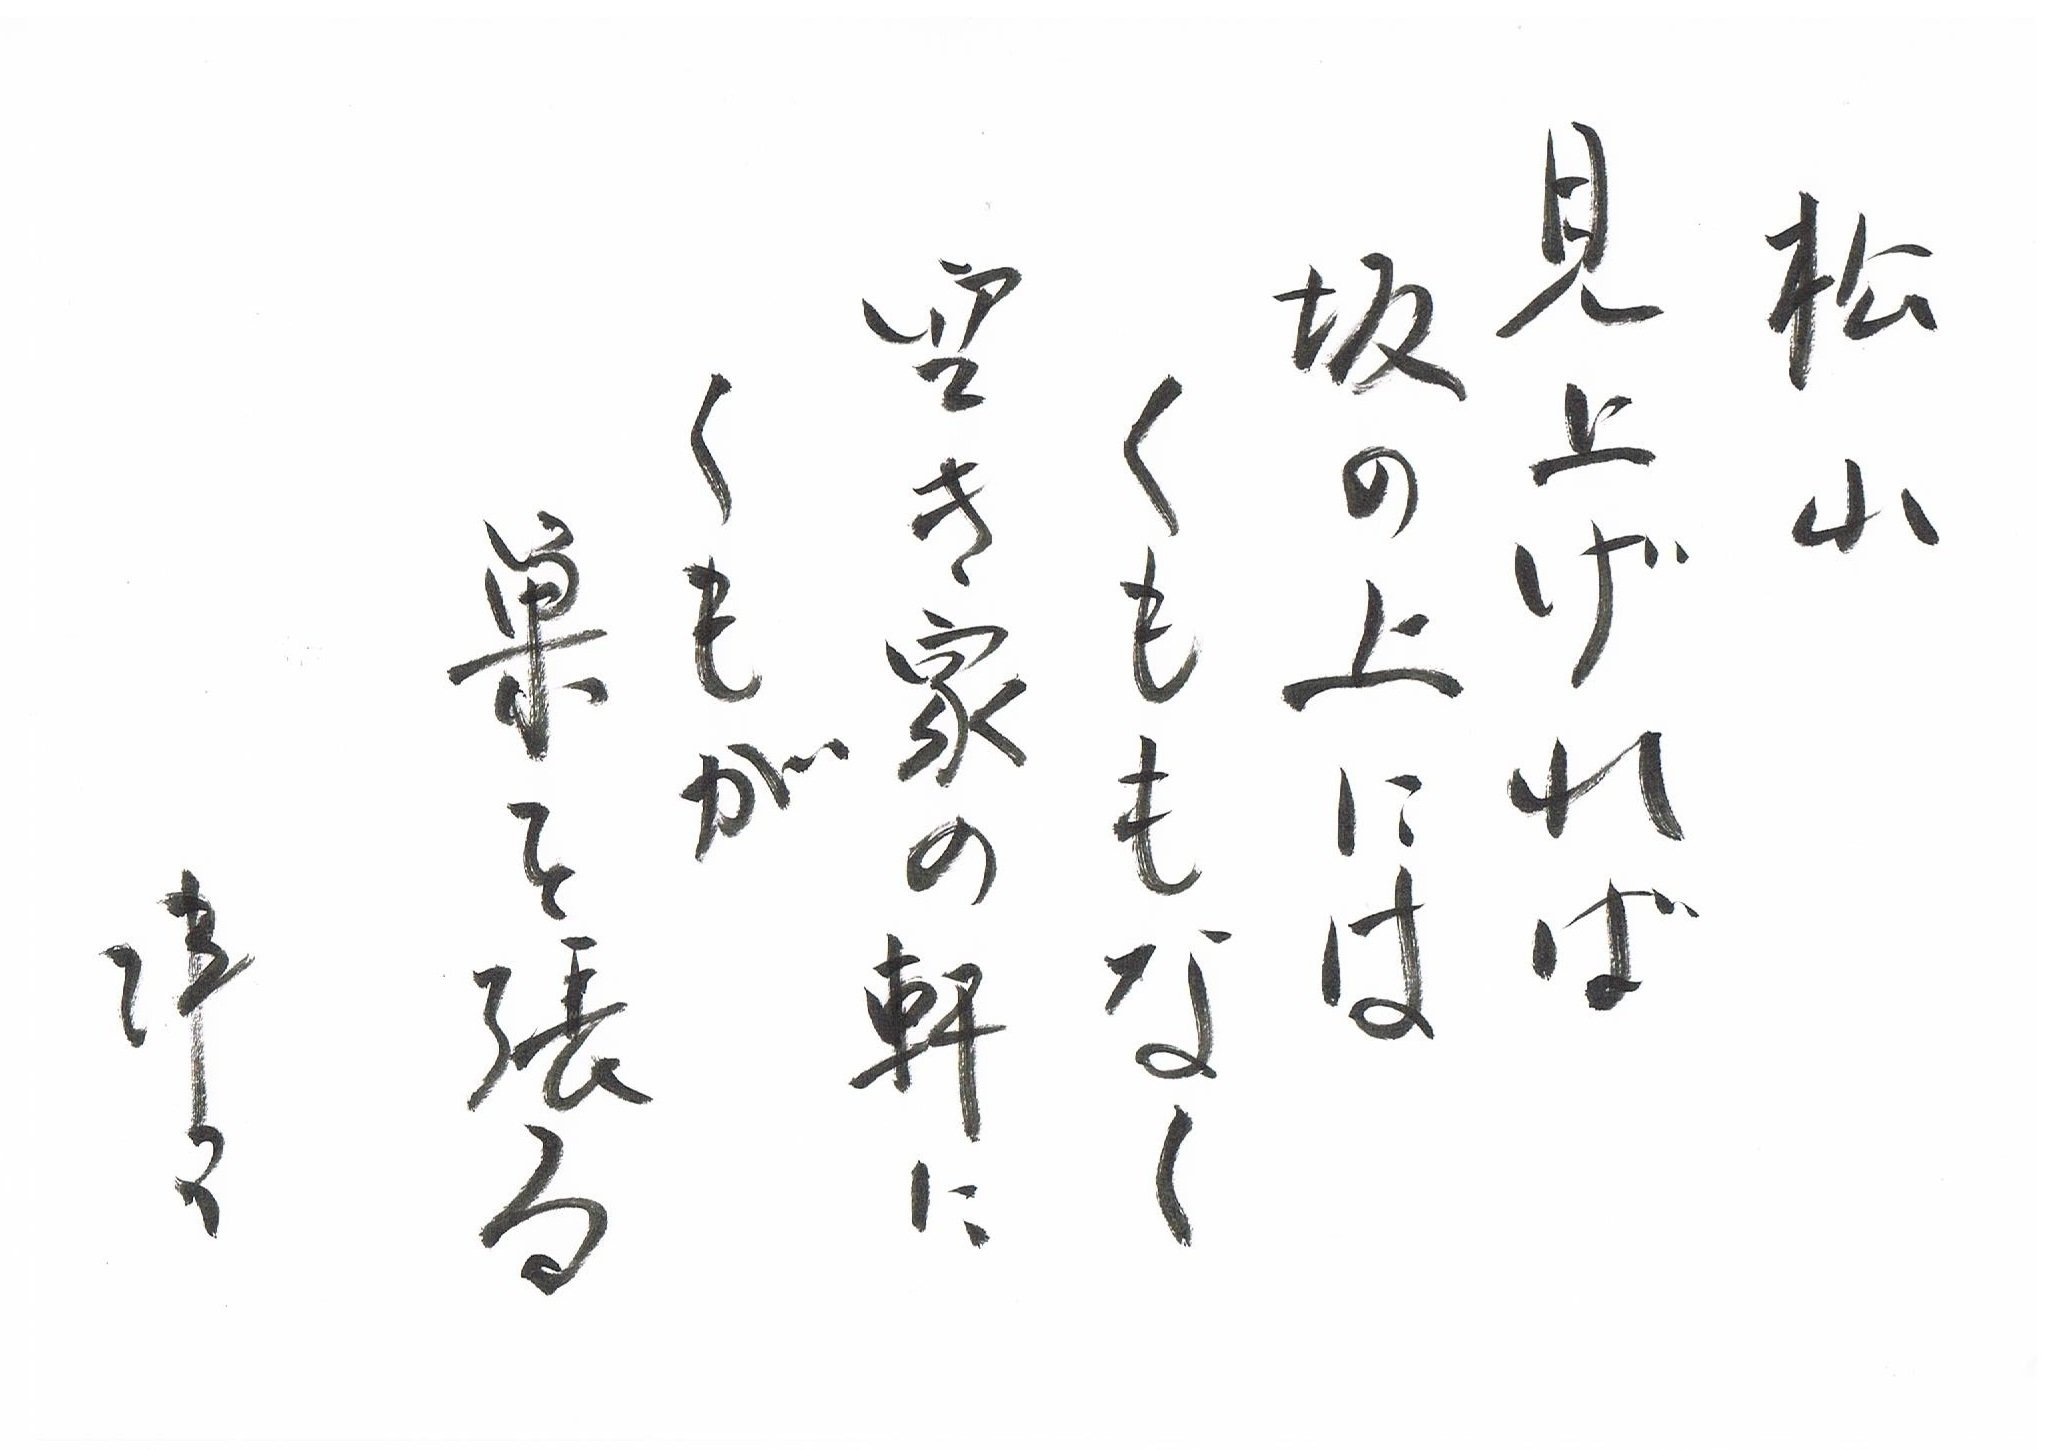 松山
見上げれば
坂の上には
くももなく
空き家の軒に
くもが
巣を張る